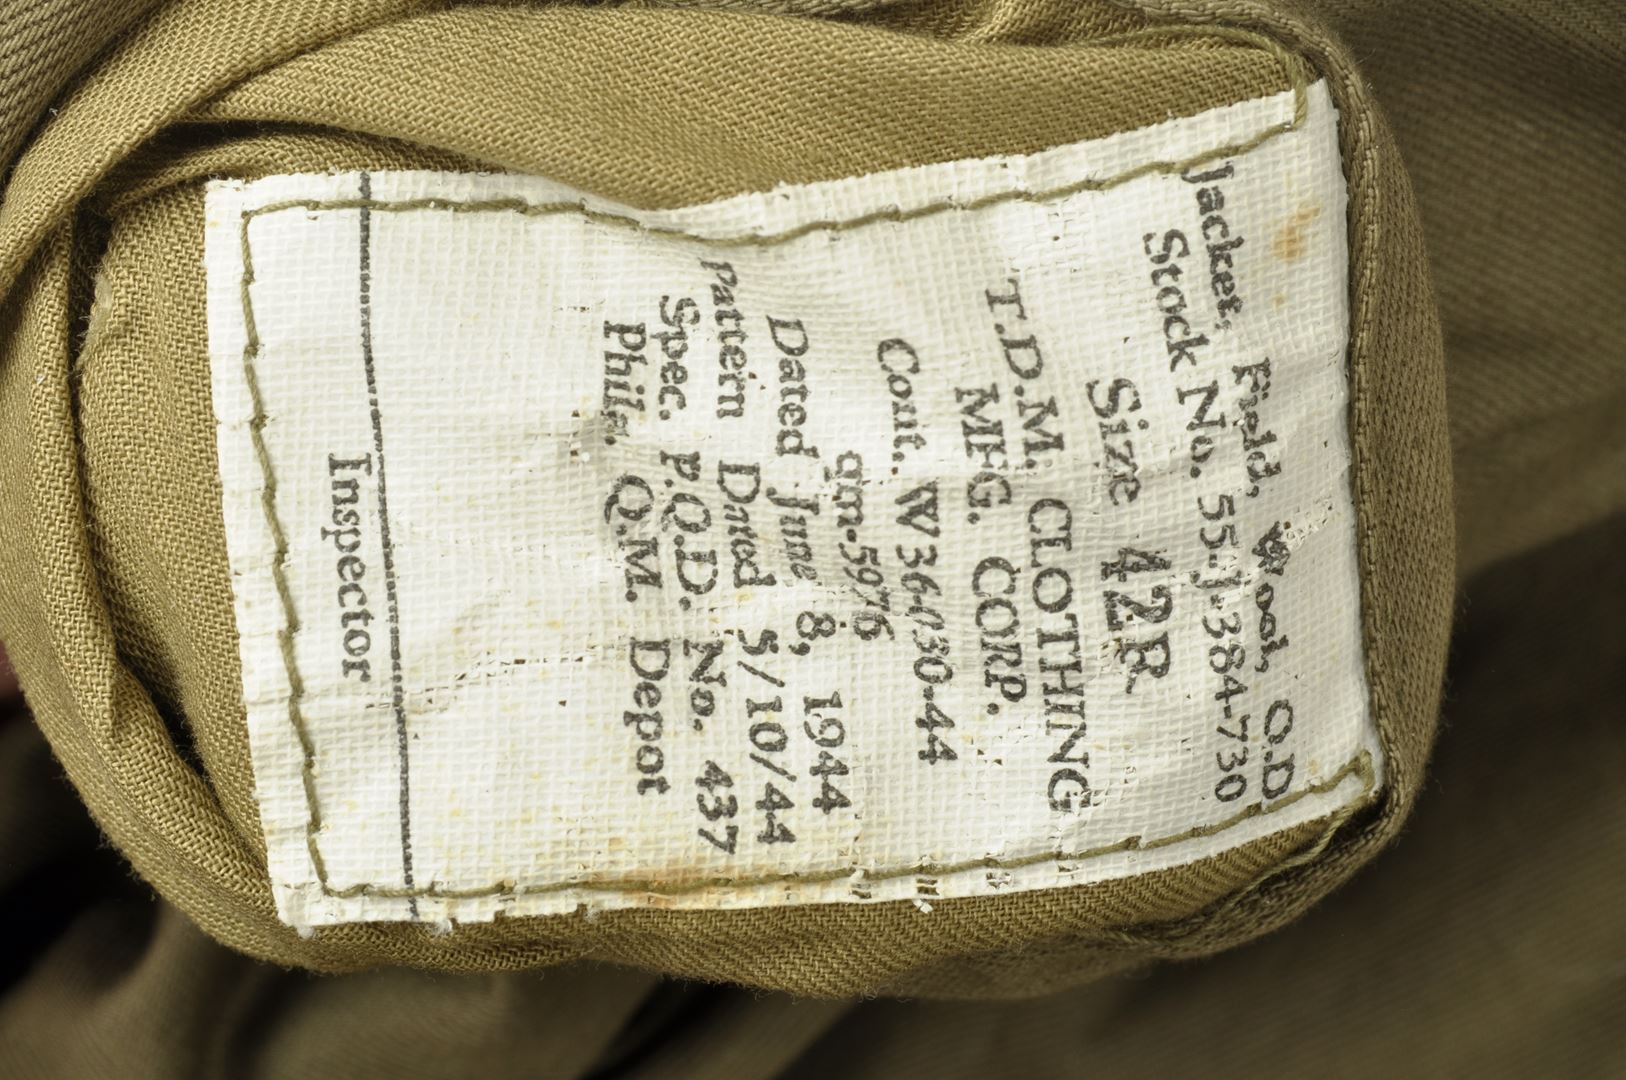 Jacket, Field, Wool, O.D
Stock No. 55-J-384-730
Size 42R
T.D.M. CLOTHING
MFG. CORP.
Cont. W36-030-44
qm-5976
Dated June 8, 1944
Pattern Dated 5/10/44
Spec. P.Q.D. No. 437
Phila. Q.M. Depot
Inspector